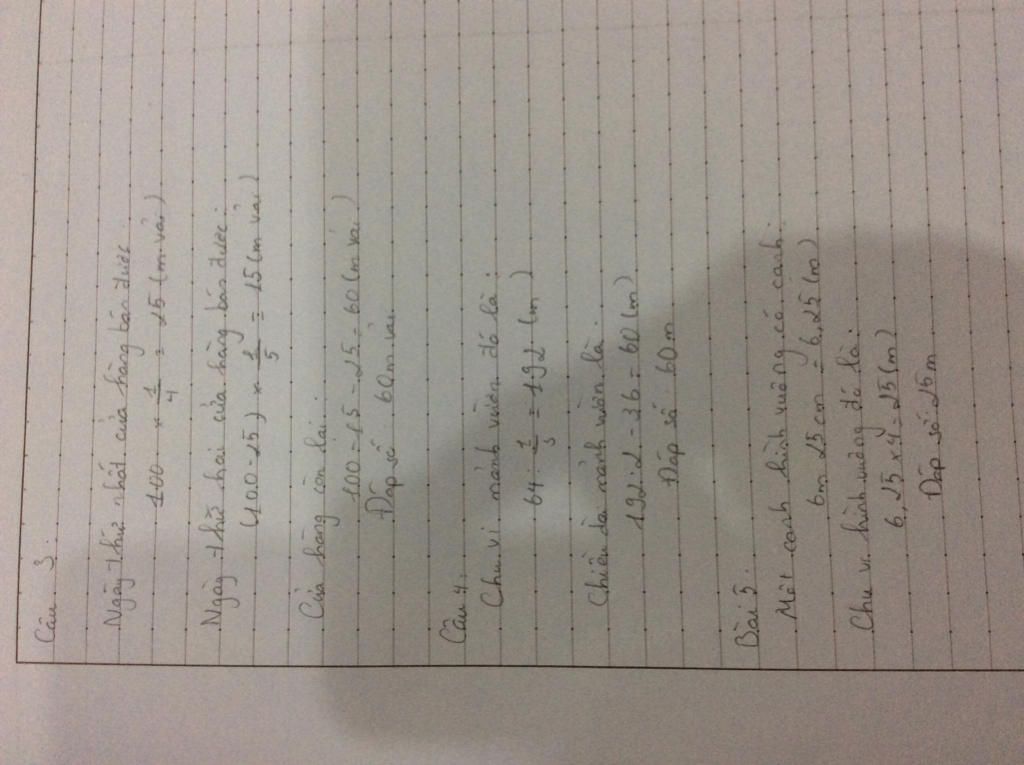 Câu 3.
Ngày thứ nhất cửa hàng bán được:
100 × 1/4 = 25 (m vải)
Ngày thứ hai cửa hàng bán được:
(100 - 25) × 1/5 = 15 (m vải)
Cửa hàng còn lại:
100 - 15 - 25 = 60 (m vải)
Đáp số: 60m vải
Câu 4.
Chu vi mảnh vườn đó là:
64 : 1/3 = 192 (m)
Chiều dài mảnh vườn là:
192 : 2 - 36 = 60 (m)
Đáp số: 60m
Bài 5.
Một cạnh hình vuông có cạnh:
6m 25cm = 6,25 (m)
Chu vi hình vuông đó là:
6,25 × 4 = 25 (m)
Đáp số: 25m